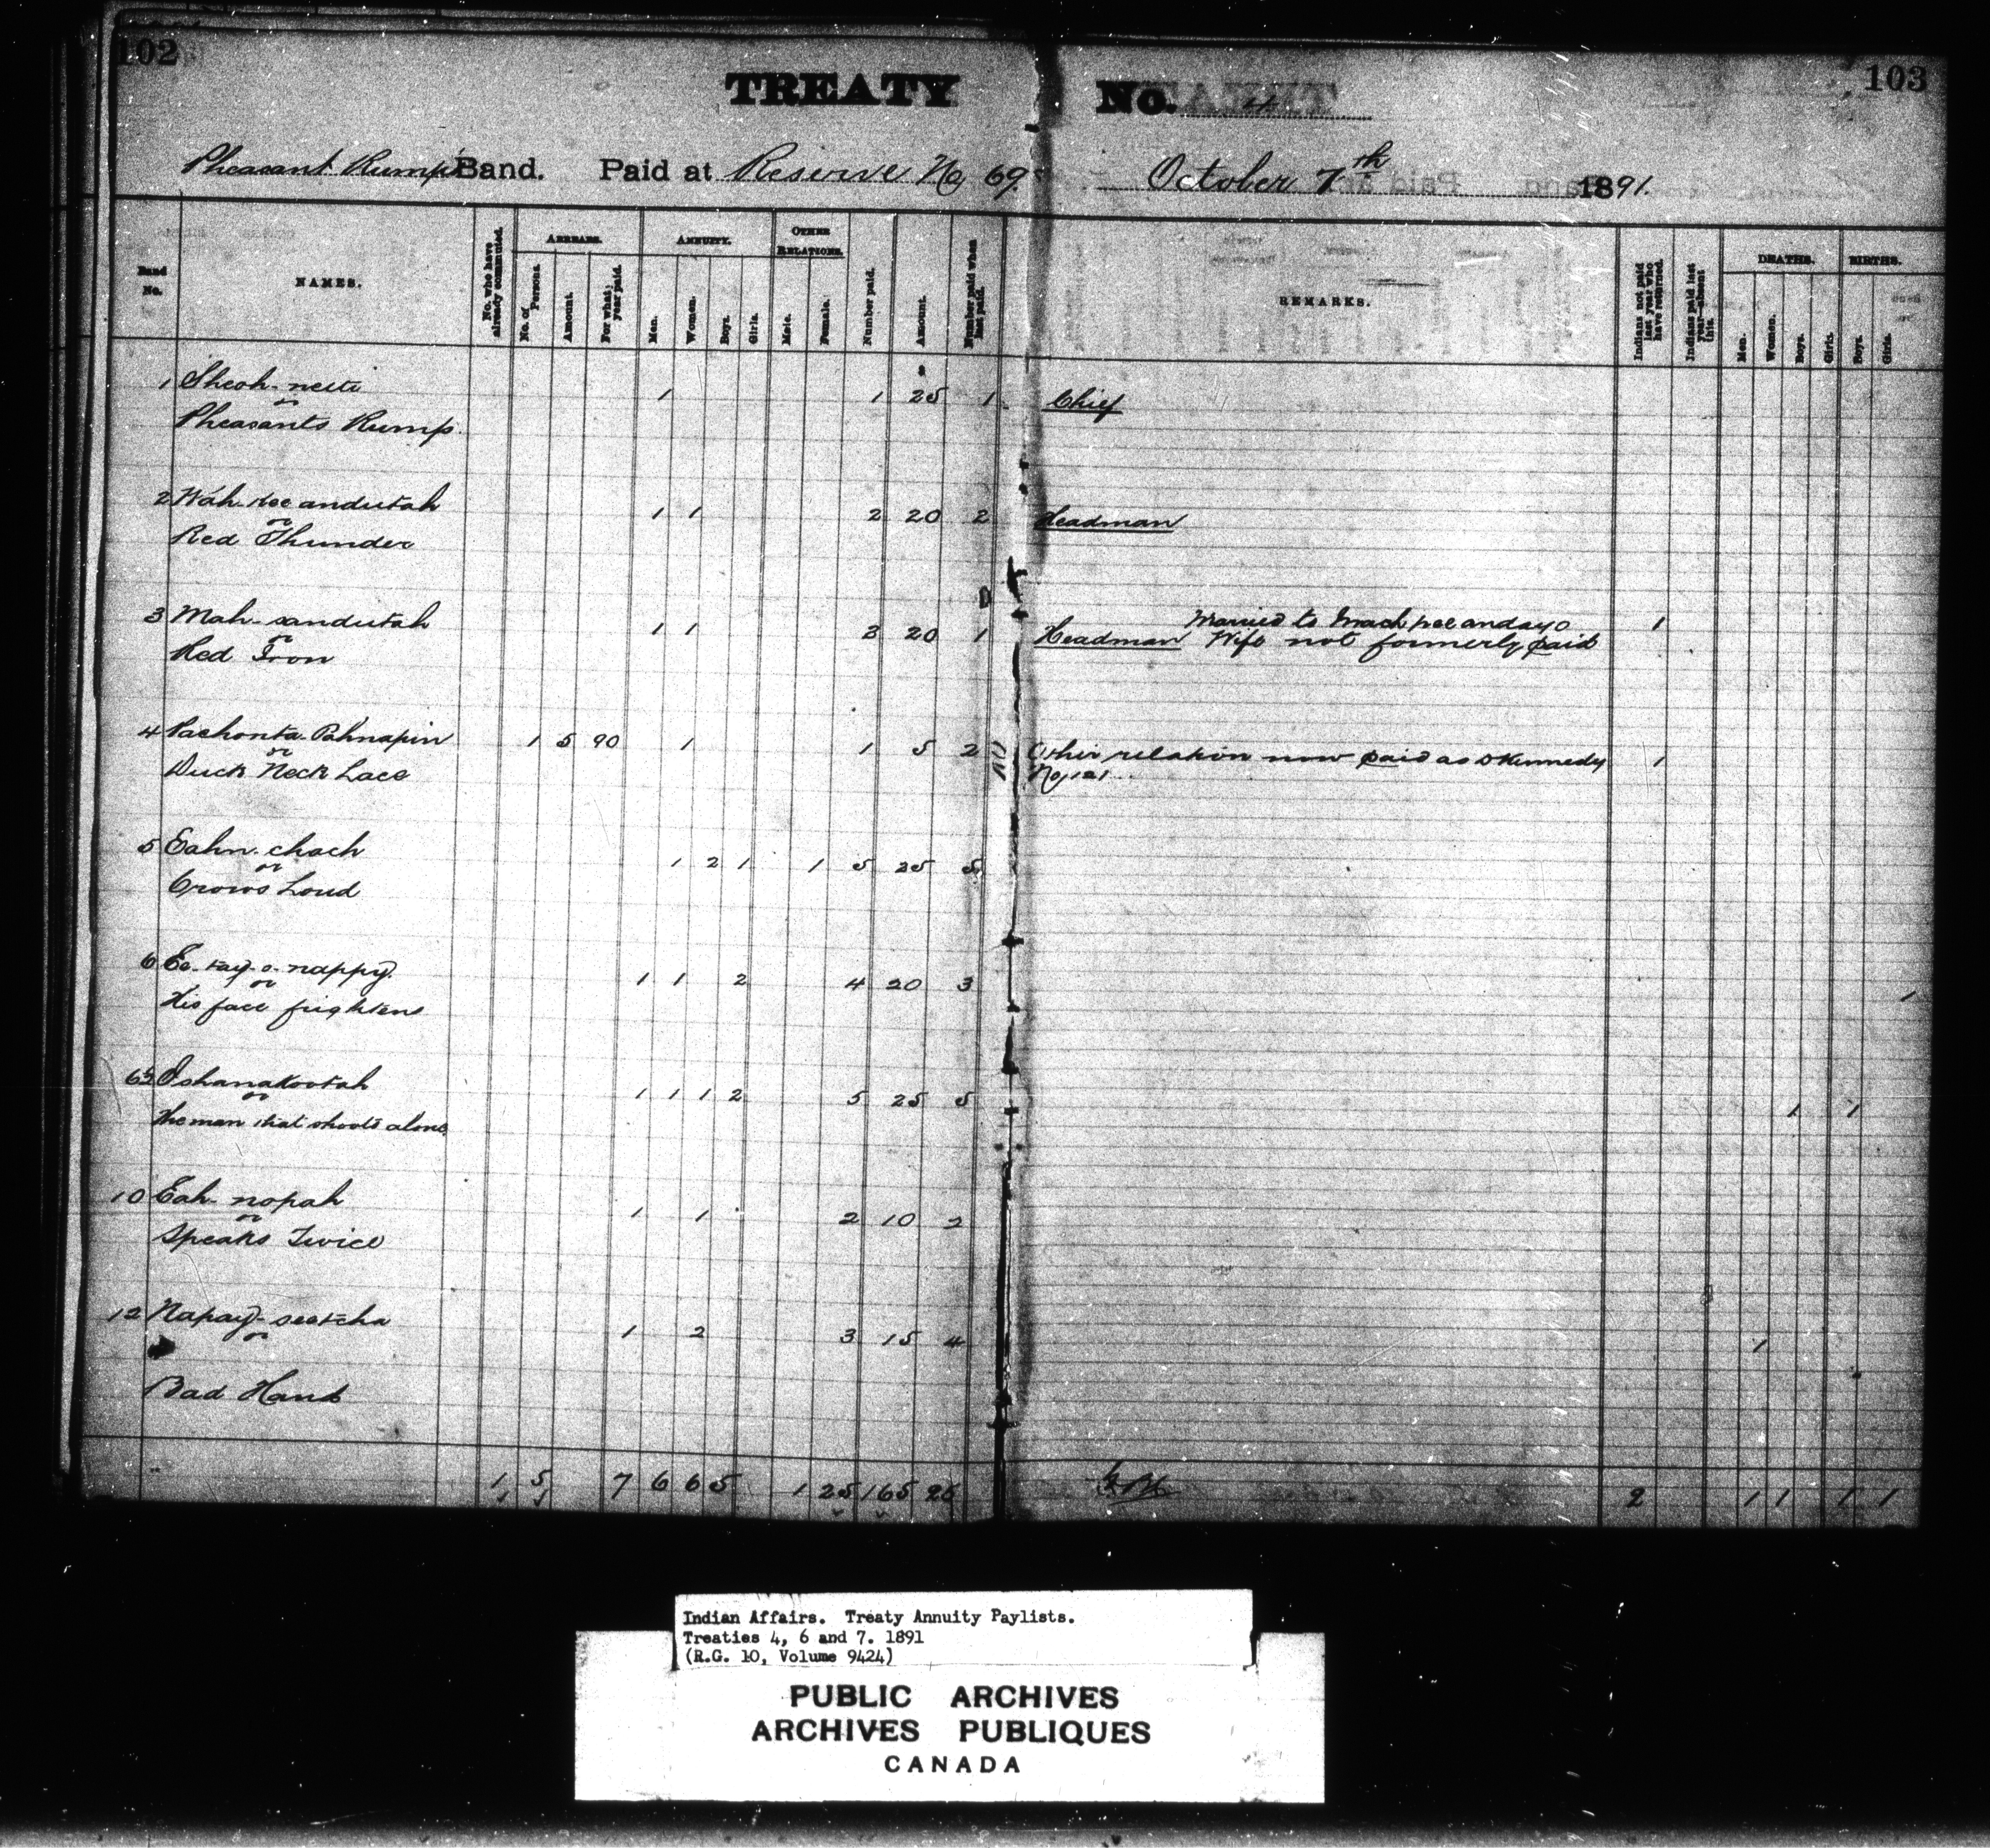 102
103
TREATY No. 4
Pheasant Rump's Band. Paid at Reserve No 69. October 7th 1891.
Band No.
NAMES.
No. who have already commuted.
ARREARS.
No. of Persons.
Amount.
For what year paid.
ANNUITY.
Men.
Women.
Boys.
Girls.
OTHER RELATIONS.
Male.
Female.
Number paid.
Amount.
Number paid when last paid.
REMARKS.
Indians not paid last year who have returned.
Indians paid last year—absent this.
DEATHS.
Men.
Women.
Boys.
Girls.
BIRTHS.
Boys.
Girls.
1 Sheoh-neiti 1 1 25 1 Chief
or
Pheasants Rump
2 Wah-kee andutah 1 1 2 20 2 Headman
or
Red Thunder
3 Mah-sandutah 1 1 2 20 1 Headman Married to 1
or Wife not formerly paid
Red Iron
4 Pachonta Pahnapin 1 5 90 1 1 5 2 Other relation now paid as Kennedy 1
or No 121
Duck Neck Lace
5 Eahn-chach 1 2 1 1 5 25 5
or
Crows Loud
6 Ee-tay-o-nappy 1 1 2 4 20 3 1
or
His face frightens
Oshanakootah 1 1 1 2 5 25 5 1 1
or
The man that shoots alone
10 Eah-nopah 1 1 2 10 2
or
Speaks Twice
12 Napay-seetcha 1 2 3 15 4 1
or
Bad Hand
1 5 7 6 6 5 1 25 165 25 2 1 1 1 1
Indian Affairs. Treaty Annuity Paylists.
Treaties 4, 6 and 7. 1891
(R.G. 10, Volume 9424)
PUBLIC ARCHIVES
ARCHIVES PUBLIQUES
CANADA